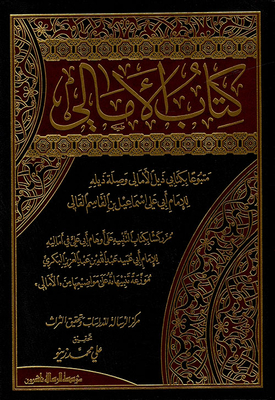 كتاب الأمالي
متبوعًا بكتابي ذيل الأمالي وصلة ذيله
للإمام أبي علي إسماعيل بن القاسم القالي
معه كتاب التنبيه على أوهام أبي علي في أماليه
للإمام أبي عبيد عبد الله بن عبد العزيز البكري
موزعة تنبيهاته على مواضعها من الأمالي
مركز الرسالة للدراسات وتحقيق التراث
تحقيق
علي محمد زينو
مؤسسة الرسالة ناشرون